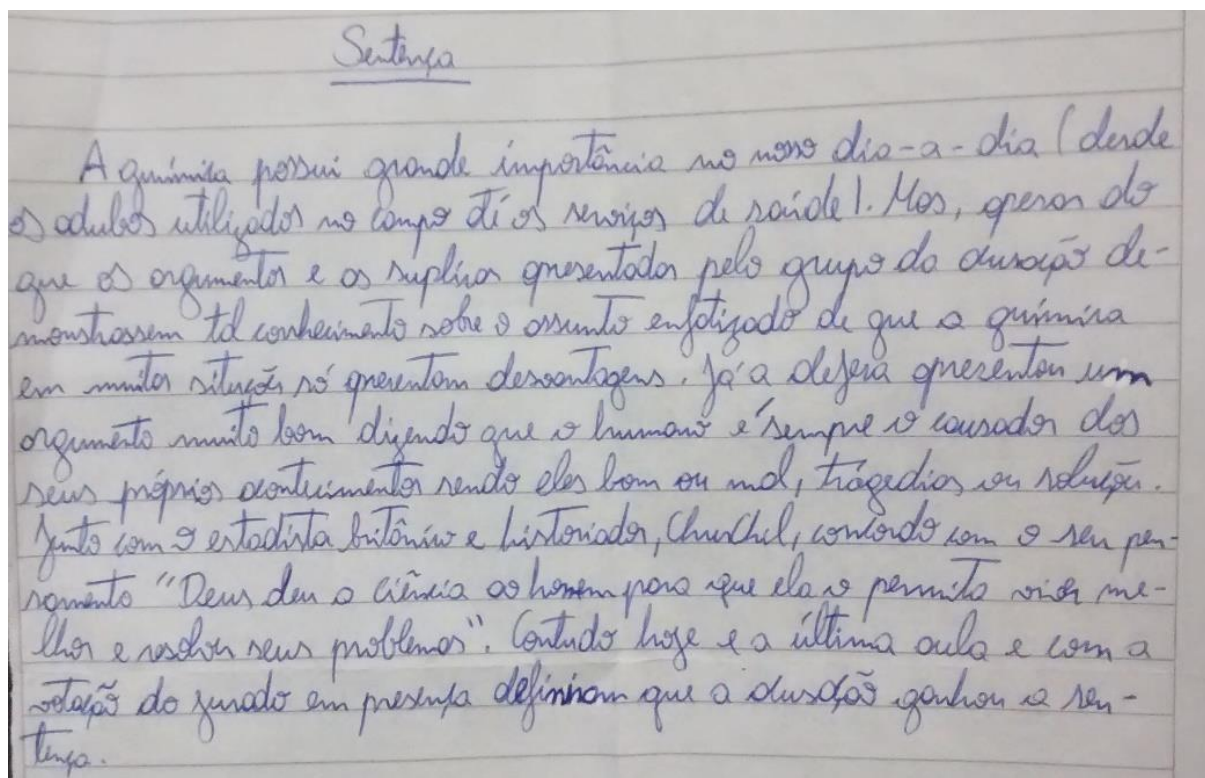 Sentença
A química possui grande importância no nosso dia-a-dia (desde
os adubos utilizados no campo té os serviços de saúde). Mas, apesar do
que os argumentos e as suplicas apresentadas pelo grupo da acusação de-
monstrassem tal conhecimento sobre o assunto enfatizado de que a química
em muitas situações só apresentam desvantagens. Já a defesa apresentou um
argumento muito bom dizendo que o humano é sempre o causador dos
seus próprios acontecimentos sendo eles bom ou mal, trágedias ou soluções.
Junto com o estadista britânico e historiador, Churchil, concordo com o seu pen-
samento "Deus deu a ciência ao homem para que ela o permita viver me-
lhor e resolver seus problemas". Contudo hoje e a última aula e com a
votação do jurado em presença definiram que a acusação ganhou a sen-
tença.